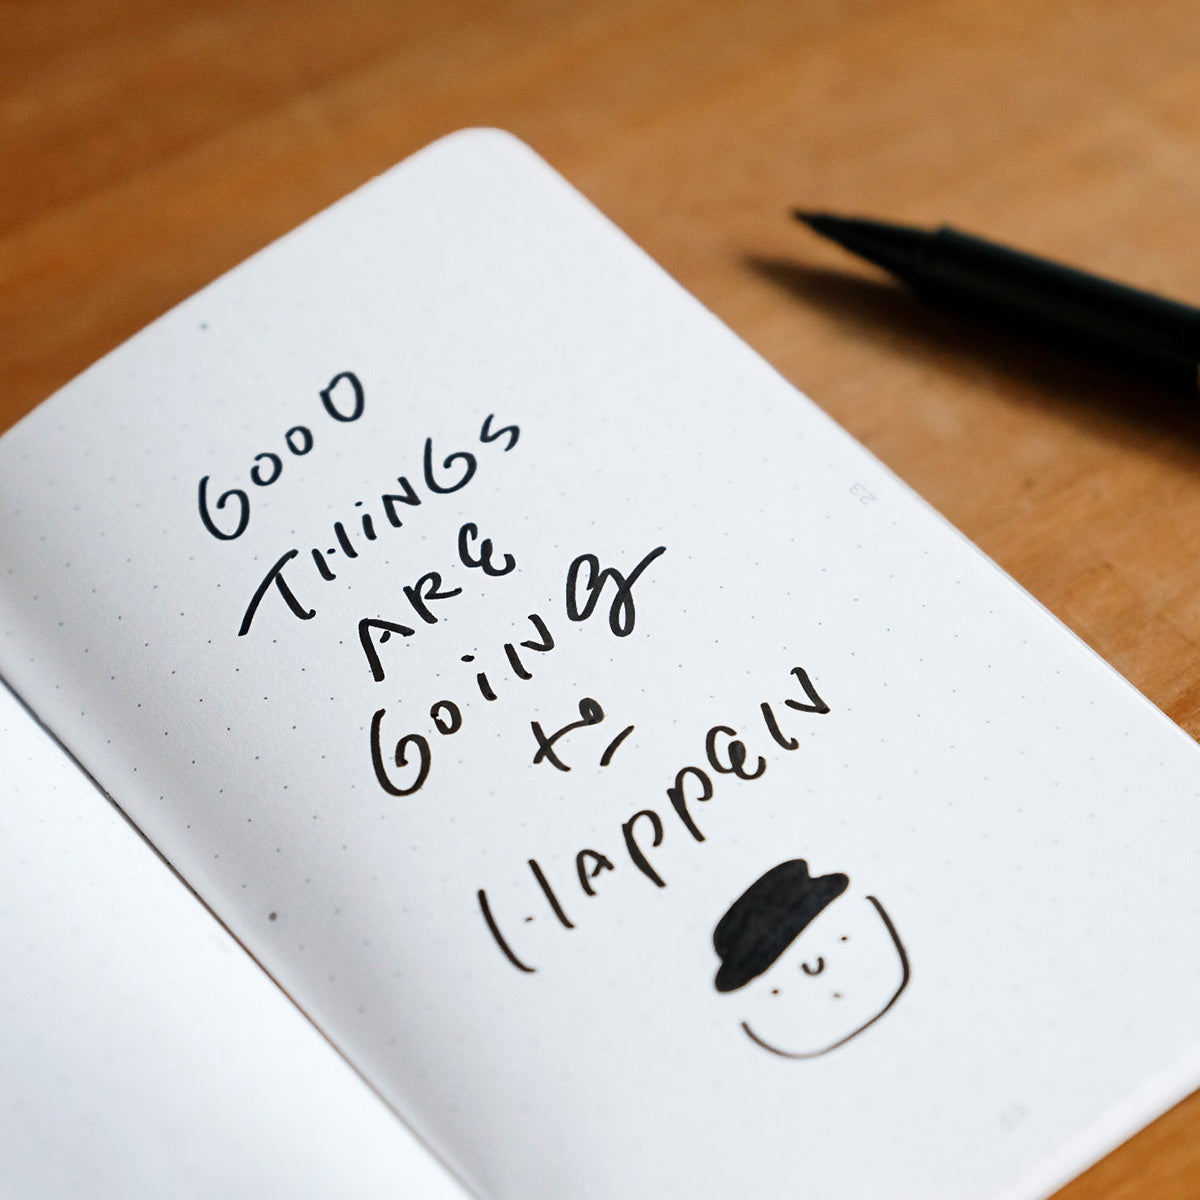 GOOD
THiNGS
ARE
GOiNG
to
HAPPEN
23